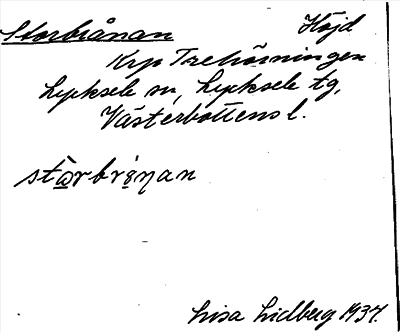 Storbrånan Höjd
Krp Trehörningen
Lycksele sn, Lycksele tg,
Västerbottens l.
stὼrbrɜ̣ŋan
Lisa Lidberg 1937.